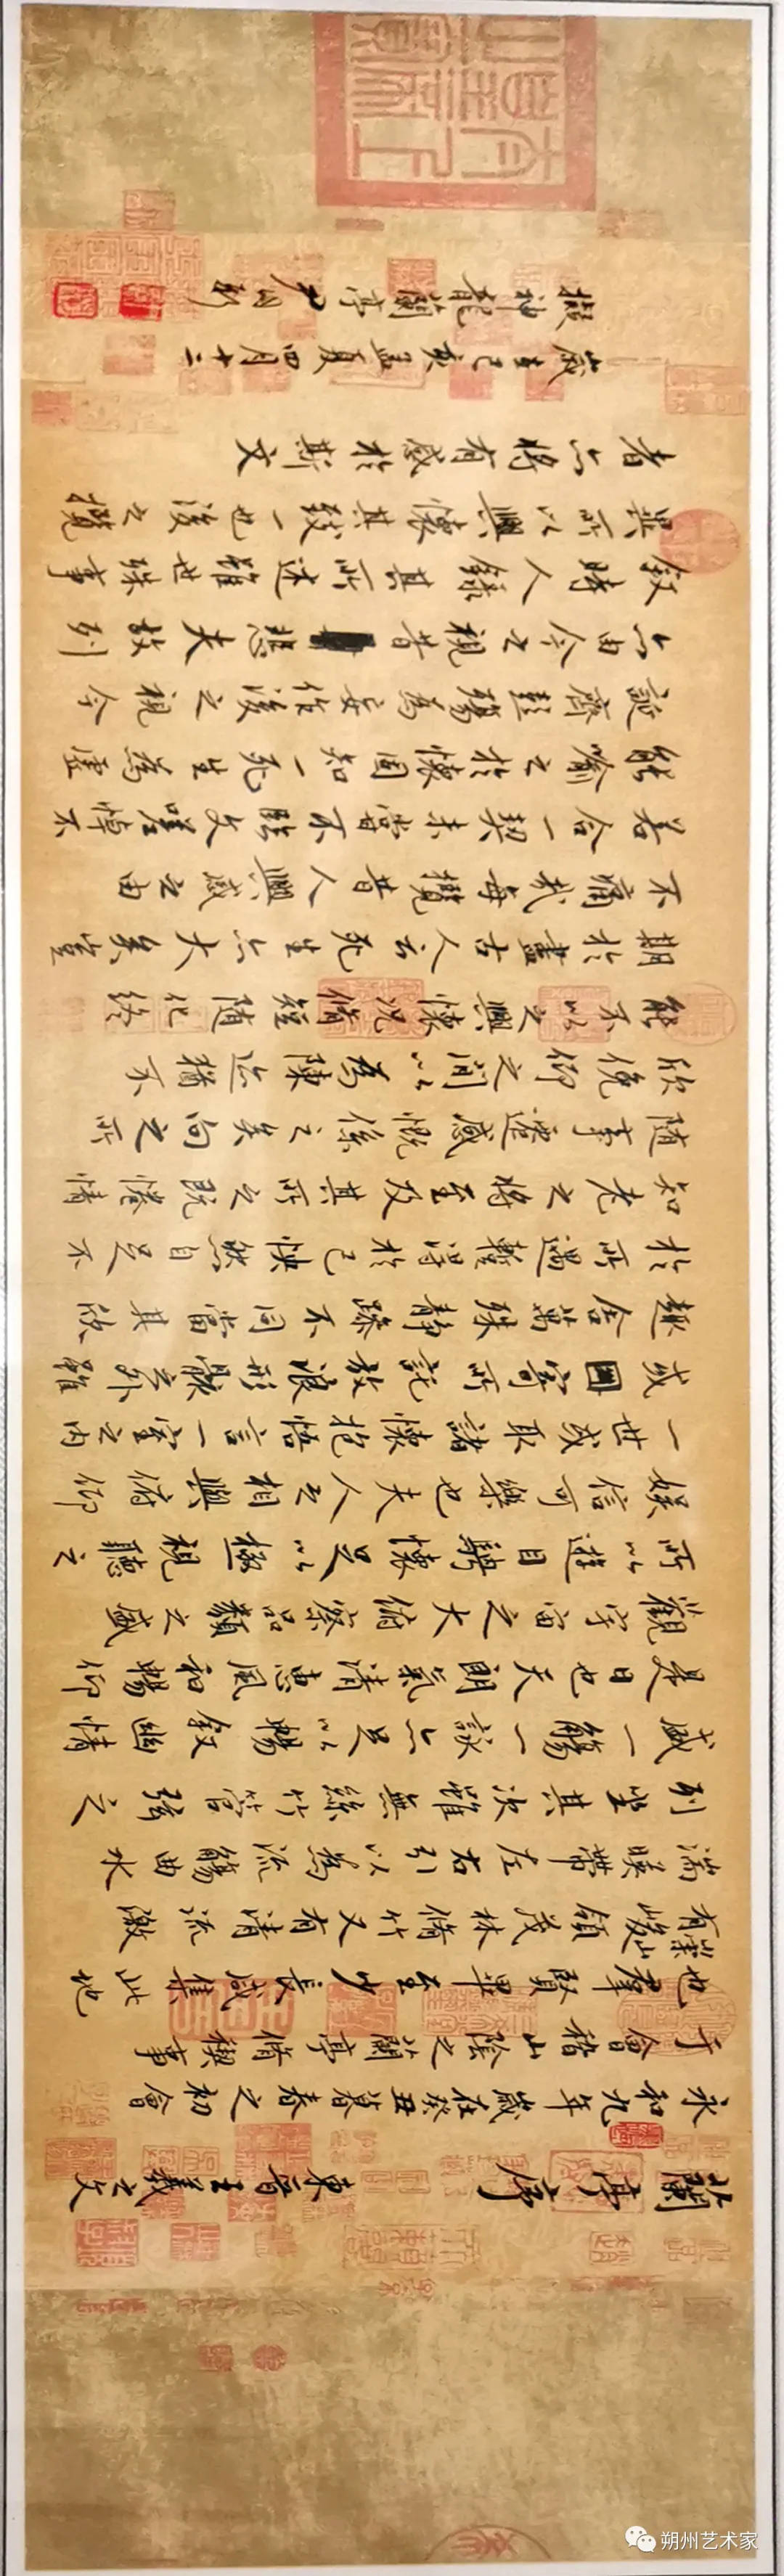 蘭亭序 東晉王羲之文
永和九年歲在癸丑暮春之初會
于會稽山陰之蘭亭脩禊事
也羣賢畢至少長咸集此地
有崇山峻領茂林脩竹又有清流激
湍暎帶左右引以為流觴曲水
列坐其次雖無絲竹管弦之
盛一觴一詠亦足以暢叙幽情
是日也天朗氣清惠風和暢仰
觀宇宙之大俯察品類之盛
所以遊目騁懷足以極視聽之
娛信可樂也夫人之相與俯仰
一世或取諸懷抱悟言一室之內
或因寄所託放浪形骸之外雖
趣舍萬殊靜躁不同當其欣
於所遇暫得於己怏然自足不
知老之將至及其所之既惓情
隨事遷感慨係之矣向之所
欣俛仰之間以為陳迹猶不
能不以之興懷況脩短隨化終
期於盡古人云死生亦大矣豈
不痛哉每攬昔人興感之由
若合一契未嘗不臨文嗟悼不
能喻之於懷固知一死生為虛
誕齊彭殤為妄作後之視今
亦由今之視昔悲夫故列
叙時人錄其所述雖世殊事
異所以興懷其致一也後之攬
者亦將有感於斯文
歲在己亥孟夏四月十二
擬神龍蘭亭
朔州艺术家